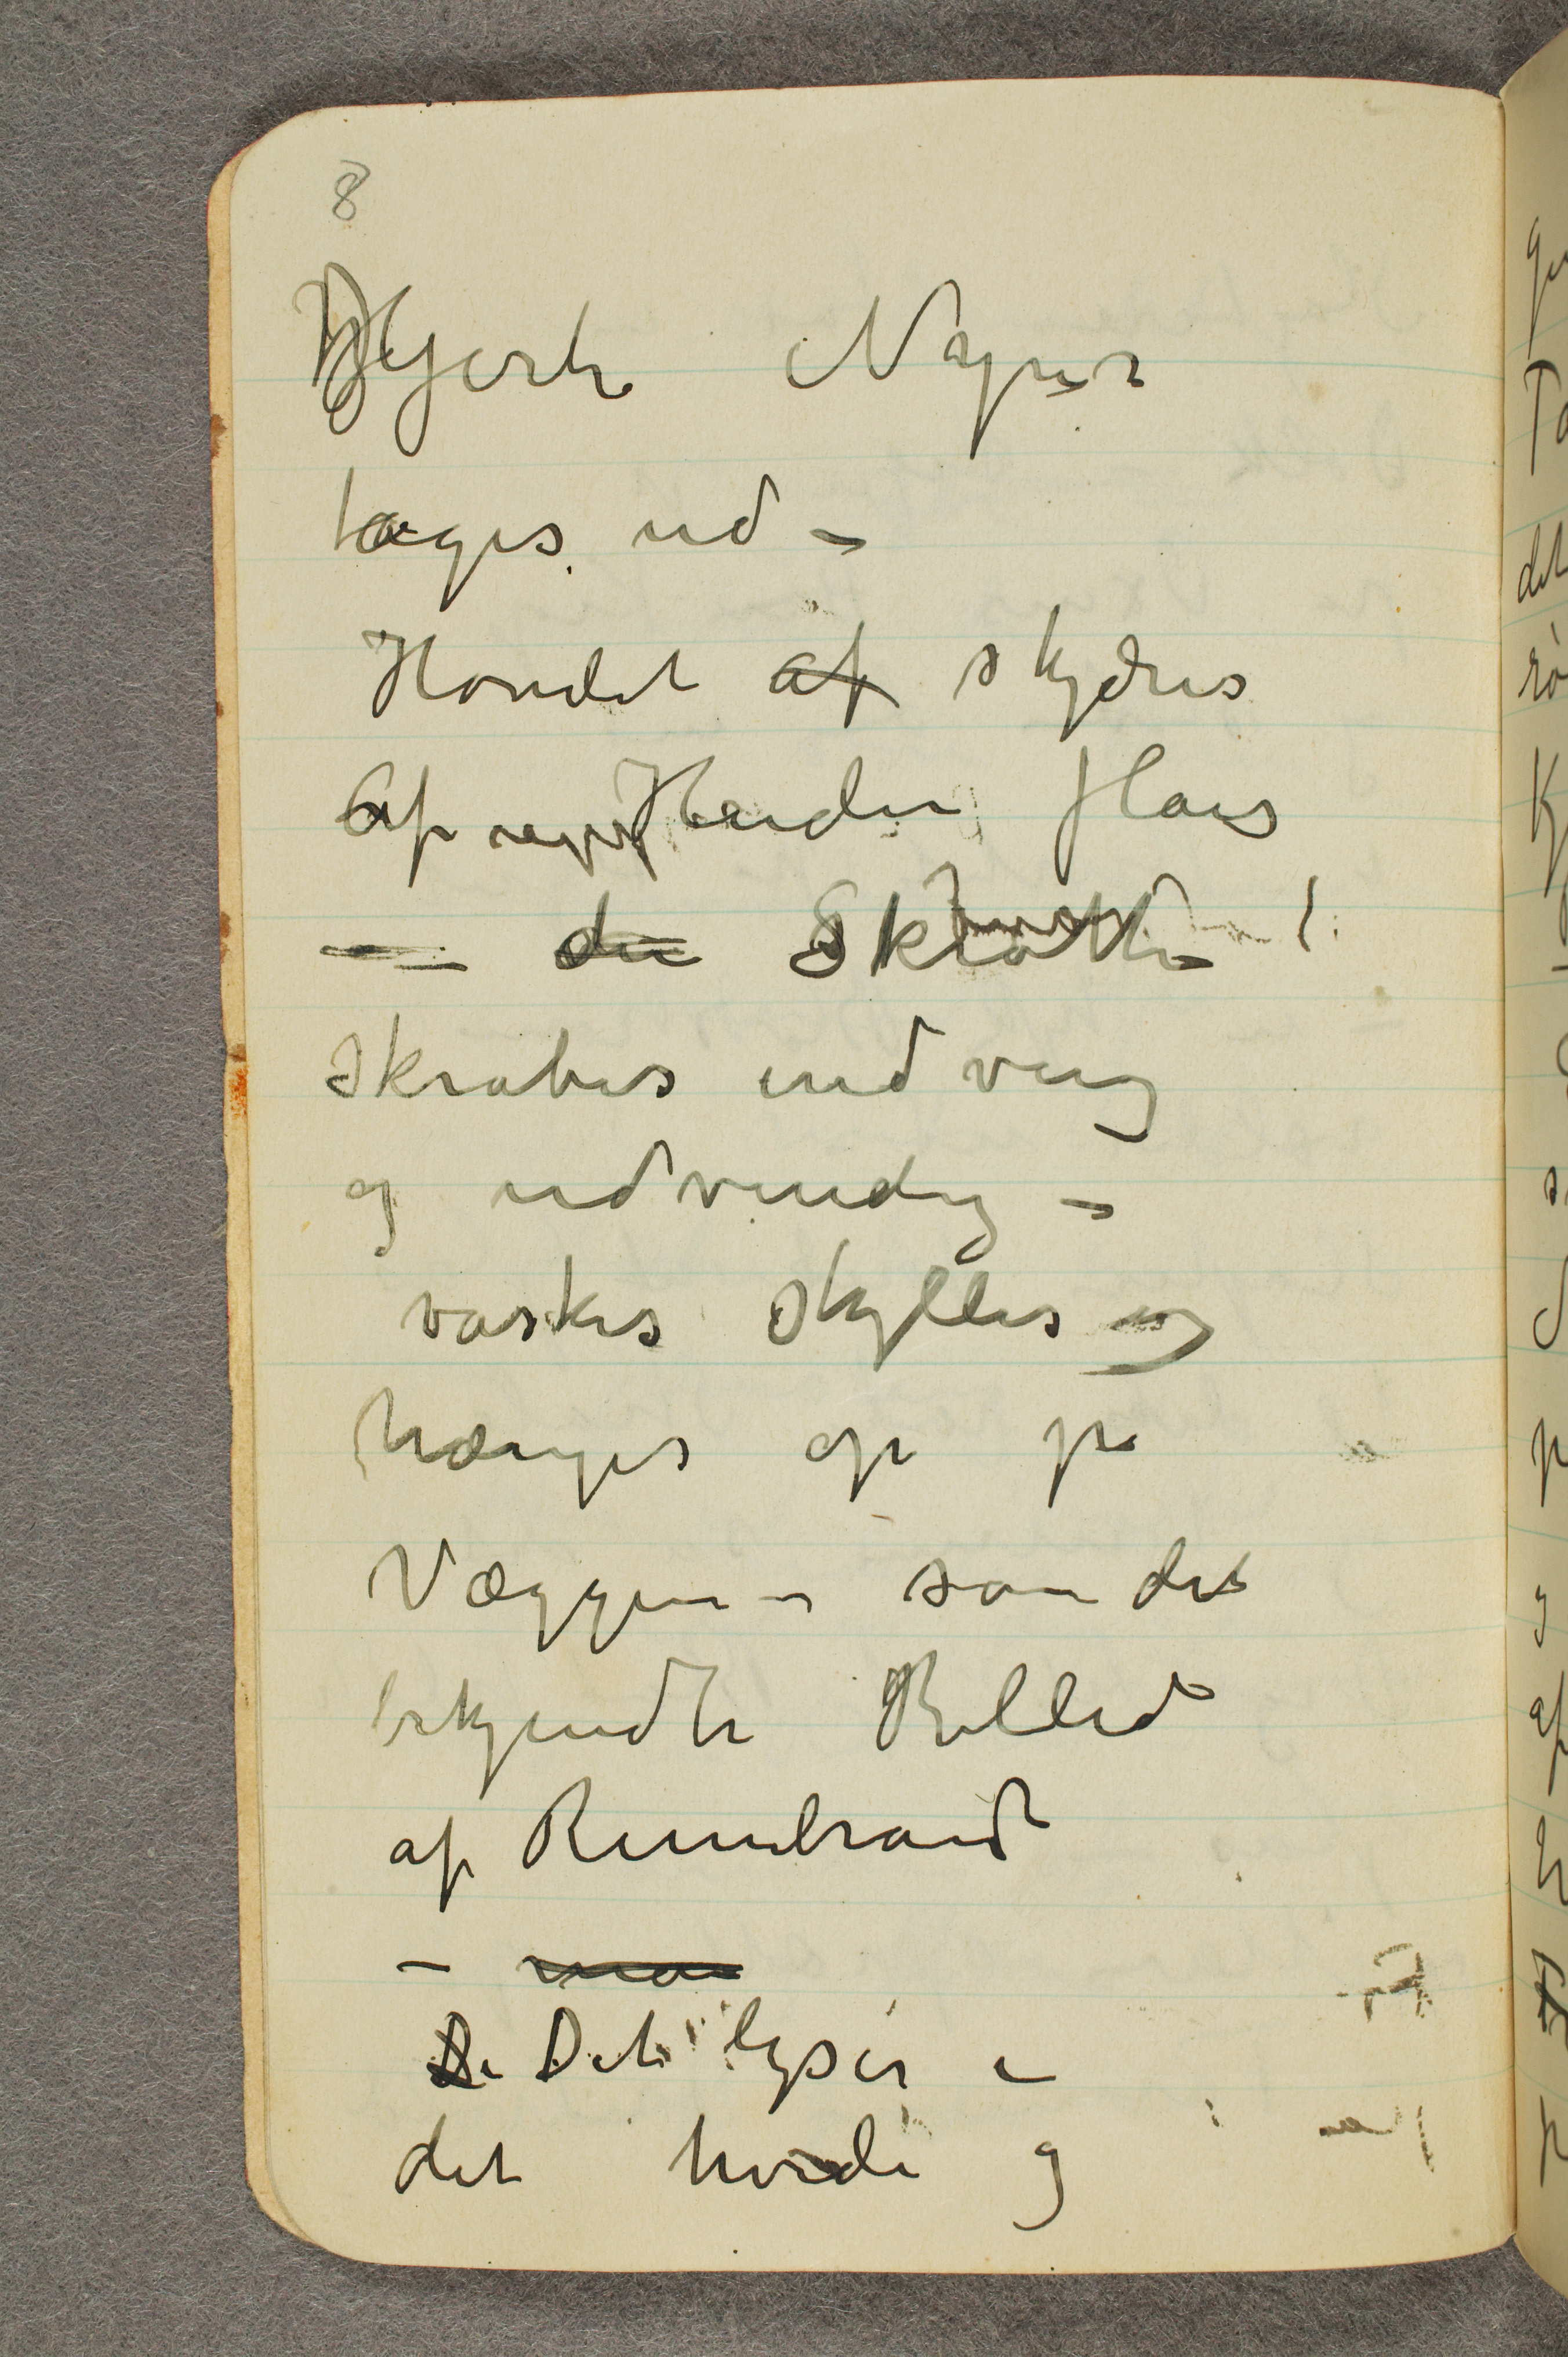 8
Hjerte Nyrer
tages ud –
Hovedet af skjæres
af Huden flaas
– den Skrotten
skrabes indvendig
og udvendig –
vaskes skylles og
hænges op på
Væggen – som det
bekjendte Billed
af Rembrandt
– man
De Det lyser i
det hvide og